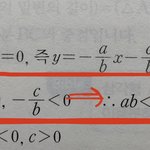 =0, 즉 y=-\frac{a}{b}x-\frac{c}{b}
, -\frac{c}{b}<0 ⇒ ∴ ab<
<0, c>0